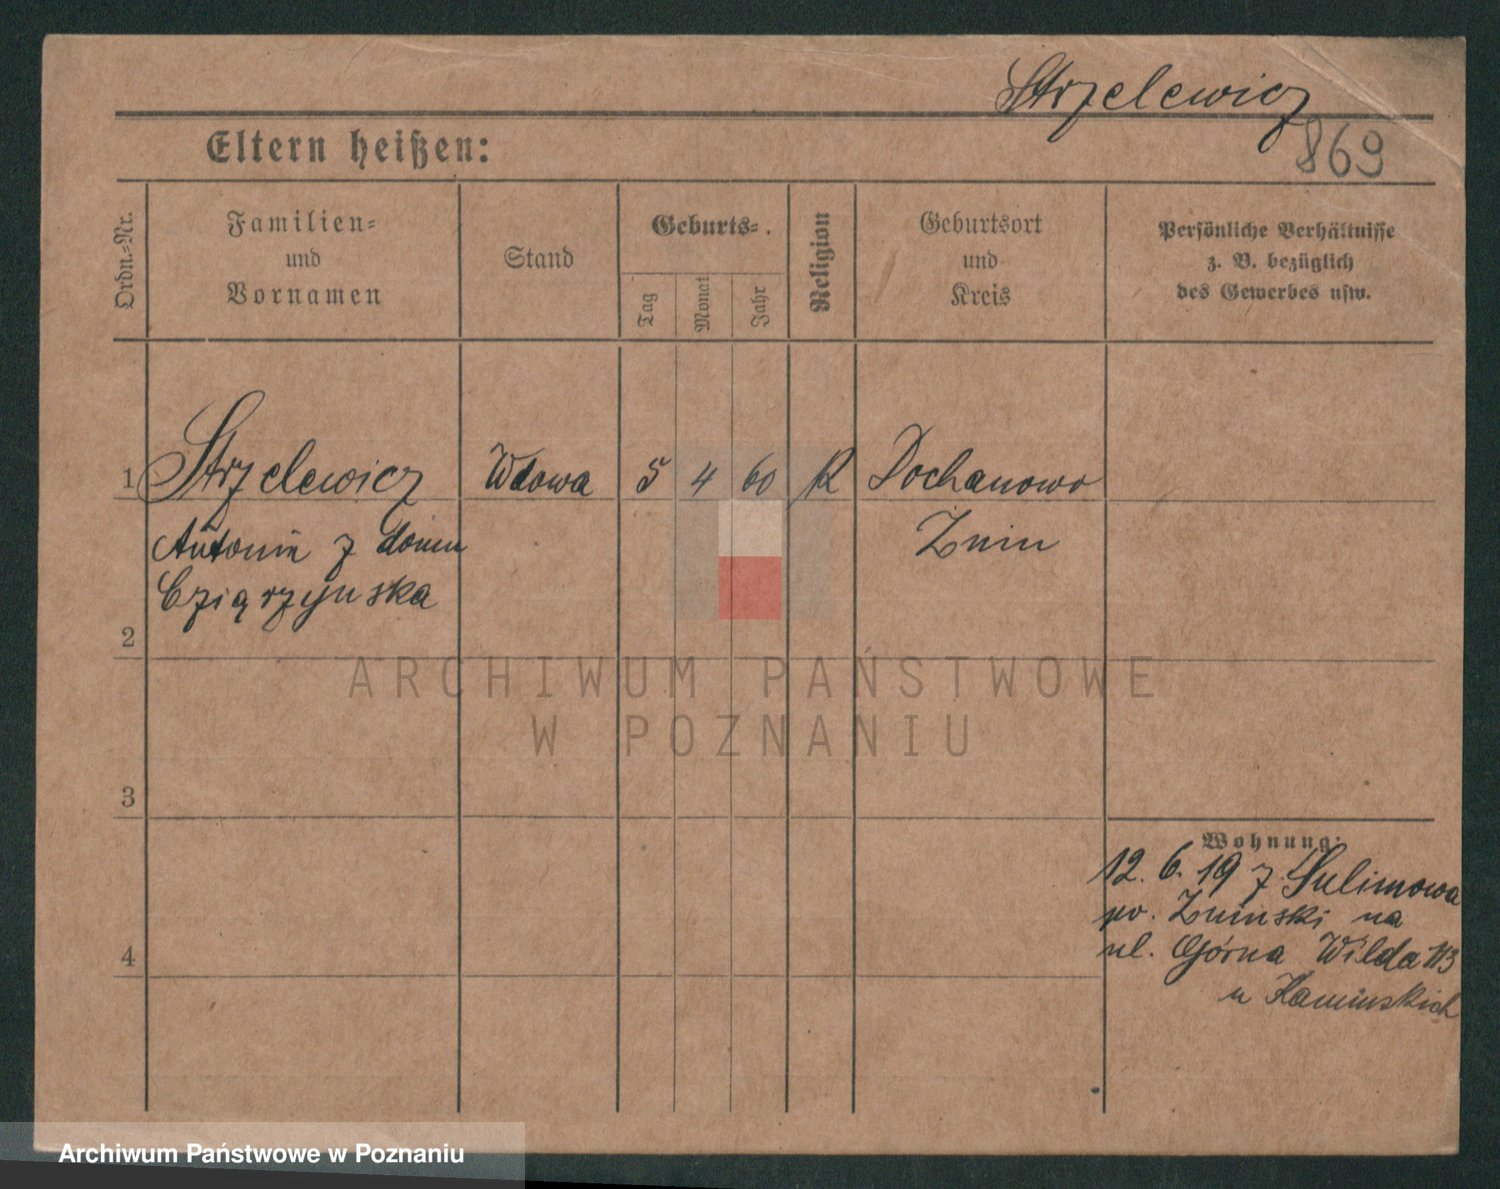 Strzelewicz
869
Eltern heißen:
Ordn.-Nr.
Familien-
und
Vornamen
Stand
Geburts-
Tag
Monat
Jahr
Religion
Geburtsort
und
Kreis
Persönliche Verhältnisse
z. B. bezüglich
des Gewerbes usw.
1 Strzelewicz Wdowa 5 4 60 R Dochanowo
Antonia z domu Żnin
Cziąrzynska
2
ARCHIWUM PAŃSTWOWE
W POZNANIU
3
Wohnung:
12. 6. 19 z Sulinowa
pow. Żninski na
4 ul. Górna Wilda 113
u Kaminskich
Archiwum Państwowe w Poznaniu